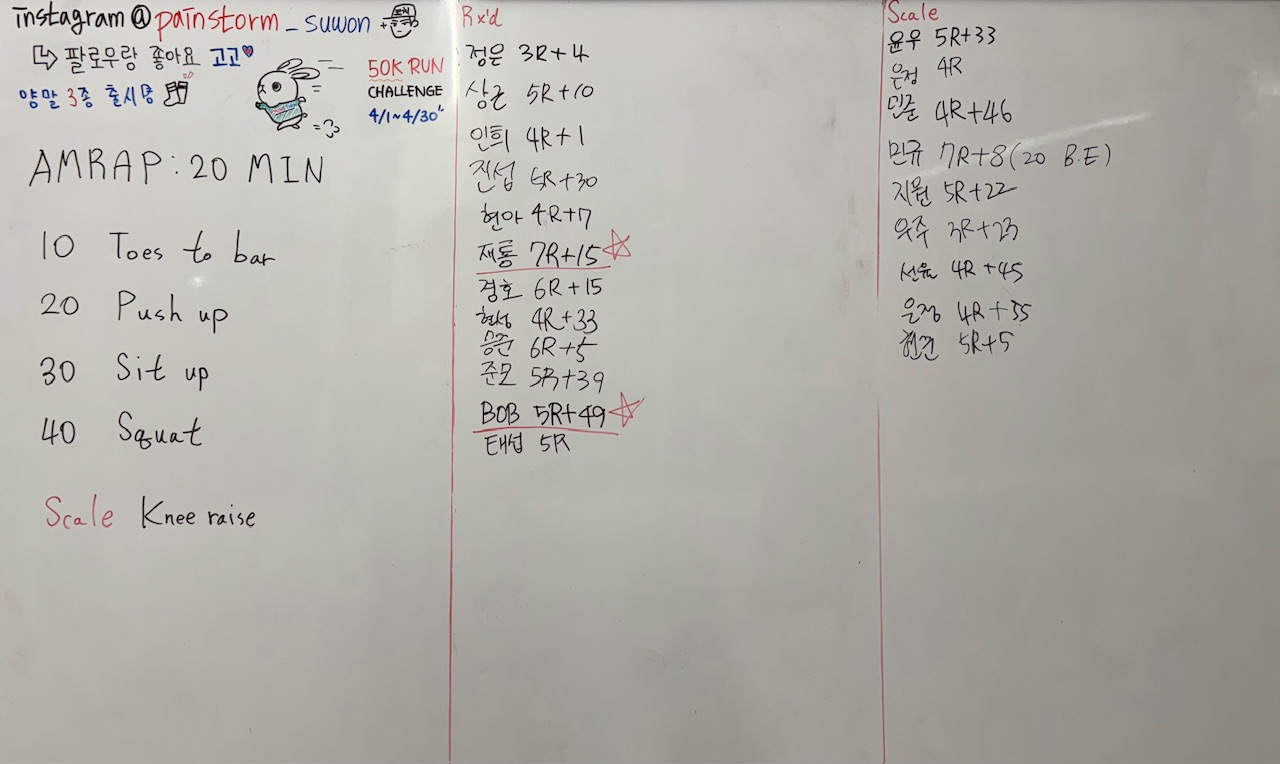 instagram@painstorm_suwon
팔로우랑 좋아요 고고
양말 3종 출시중
50K RUN
CHALLENGE
4/1~4/30
AMRAP : 20 MIN
10 Toes to bar
20 Push up
30 Sit up
40 Squat
Scale Knee raise
Rx'd
정은 3R+4
상근 5R+10
인희 4R+1
진섭 5R+30
현아 4R+7
재룡 7R+15
경호 6R+15
현성 4R+33
승준 6R+5
준모 5R+39
BOB 5R+49
태섭 5R
Scale
윤우 5R+33
은정 4R
민준 4R+46
민규 7R+8(20 B.E)
지원 5R+22
우주 3R+23
선유 4R+45
은정 4R+35
5R+5